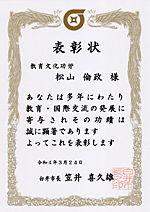 表彰状
教育文化功労
松山 倫政 様
あなたは多年にわたり
教育・国際交流の発展に
寄与されその功績は
誠に顕著であります
よってこれを表彰します
令和4年3月24日
白井市長 笠井 喜久雄